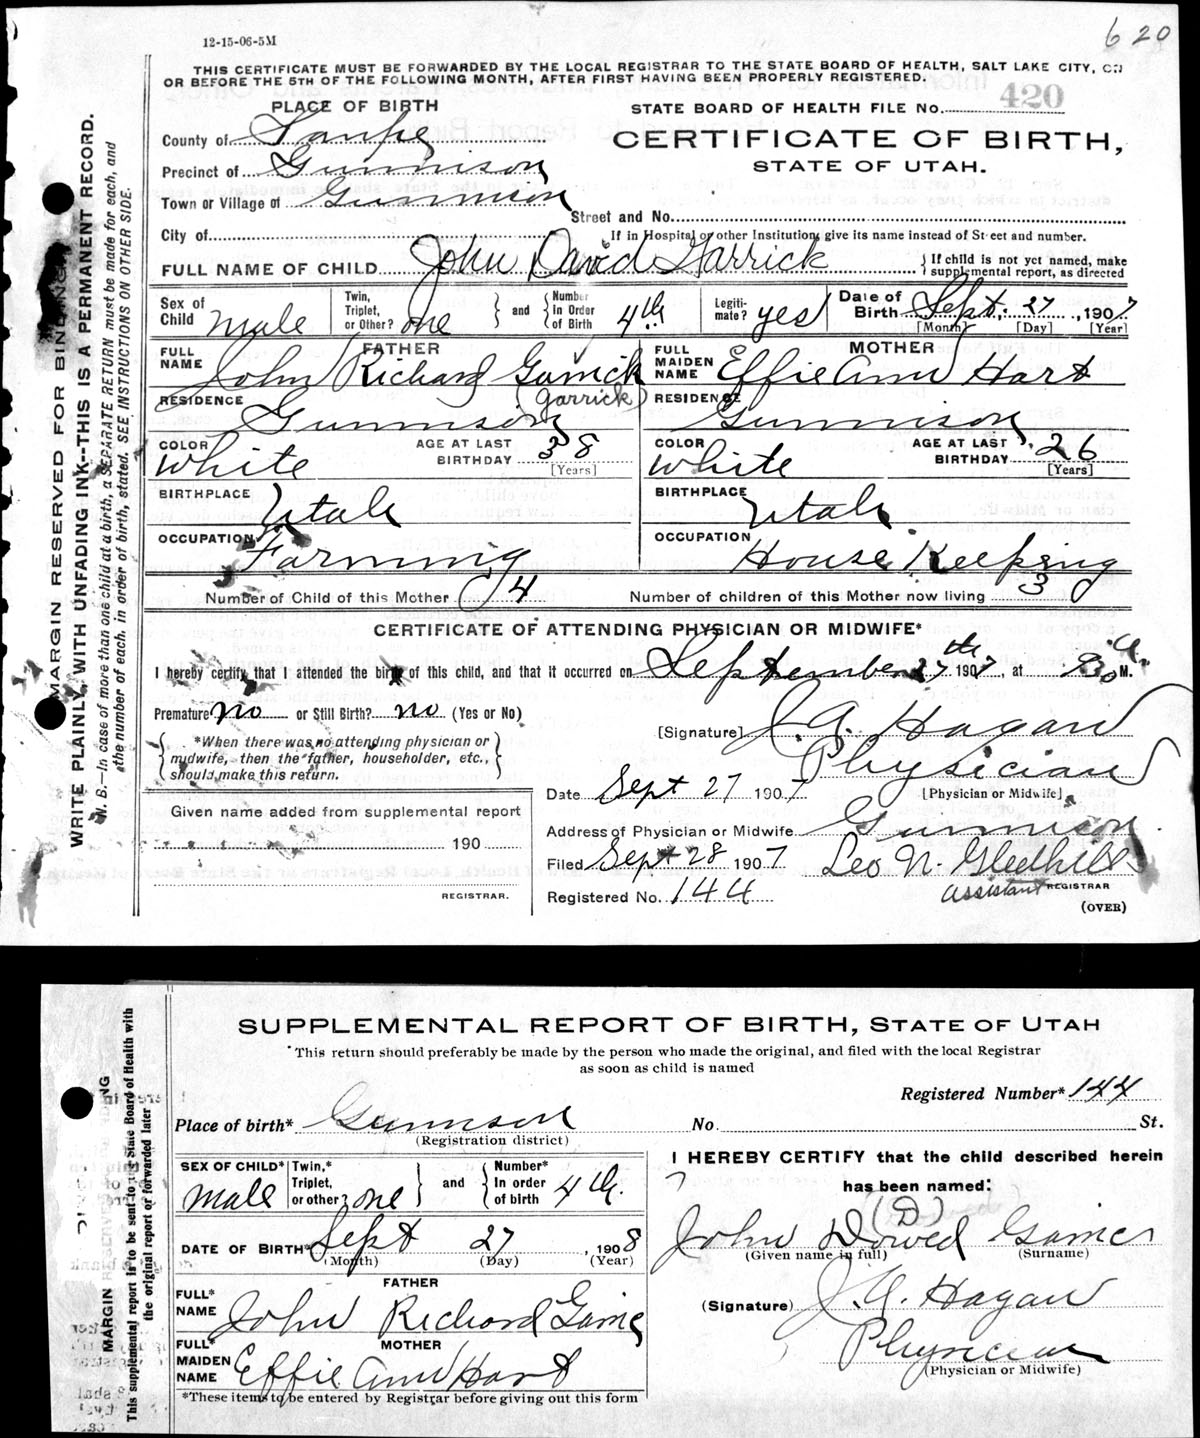 6 20
12-15-06-5M
THIS CERTIFICATE MUST BE FORWARDED BY THE LOCAL REGISTRAR TO THE STATE BOARD OF HEALTH, SALT LAKE CITY, ON
OR BEFORE THE 5TH OF THE FOLLOWING MONTH, AFTER FIRST HAVING BEEN PROPERLY REGISTERED.
PLACE OF BIRTH
STATE BOARD OF HEALTH FILE No. 420
County of Sanpe
CERTIFICATE OF BIRTH,
Precinct of Gunnison
STATE OF UTAH.
Town or Village of Gunnison
Street and No.
City of
If in Hospital or other Institution, give its name instead of Street and number.
FULL NAME OF CHILD John David Garrick { If child is not yet named, make supplemental report, as directed
Sex of Child Male Twin, Triplet, or Other? one } and { Number In Order of Birth 4th Legiti-mate? yes Date of Birth Sept. 27, 1907
[Month] [Day] [Year]
FATHER
MOTHER
FULL NAME John Richard Garrick
FULL MAIDEN NAME Effie Ann Hart
(Garrick)
RESIDENCE Gunnison
RESIDENCE Gunnison
COLOR White AGE AT LAST BIRTHDAY 38 [Years]
COLOR White AGE AT LAST BIRTHDAY 26 [Years]
BIRTHPLACE Utah
BIRTHPLACE Utah
OCCUPATION Farming
OCCUPATION House Keeping
Number of Child of this Mother 4
Number of children of this Mother now living 3
CERTIFICATE OF ATTENDING PHYSICIAN OR MIDWIFE*
I hereby certify that I attended the birth of this child, and that it occurred on September 27th 1907, at M.
Premature? no or Still Birth? no (Yes or No)
[Signature] J. A. Hagan
{ *When there was no attending physician or
midwife, then the father, householder, etc.,
should make this return. }
Physician
[Physician or Midwife]
Date Sept 27 1907
Given name added from supplemental report
Address of Physician or Midwife Gunnison
190
Filed Sept 28 1907 Leo N. Gledhill
assistant REGISTRAR
REGISTRAR.
Registered No. 144
(OVER)
MARGIN RESERVED FOR BINDING
WRITE PLAINLY, WITH UNFADING INK--THIS IS A PERMANENT RECORD.
N. B.—In case of more than one child at a birth, a SEPARATE RETURN must be made for each, and
the number of each, in order of birth, stated. SEE INSTRUCTIONS ON OTHER SIDE.
SUPPLEMENTAL REPORT OF BIRTH, STATE OF UTAH
*This return should preferably be made by the person who made the original, and filed with the local Registrar
as soon as child is named
Registered Number* 144
Place of birth* Gunnison No. St.
(Registration district)
SEX OF CHILD* Male Twin,* Triplet, or other? one } and { Number* In order of birth 4th.
I HEREBY CERTIFY that the child described herein
has been named:
(D)
DATE OF BIRTH* Sept 27, 1908
(Month) (Day) (Year)
John Dowed
(Given name in full) (Surname)
FATHER
FULL* NAME John Richard
(Signature) J. A. Hagan
MOTHER
FULL* MAIDEN NAME Effie Ann Hart
Physician
(Physician or Midwife)
*These items to be entered by Registrar before giving out this form
MARGIN RESERVED
This supplemental report is to be sent to the State Board of Health with
the original report or forwarded later